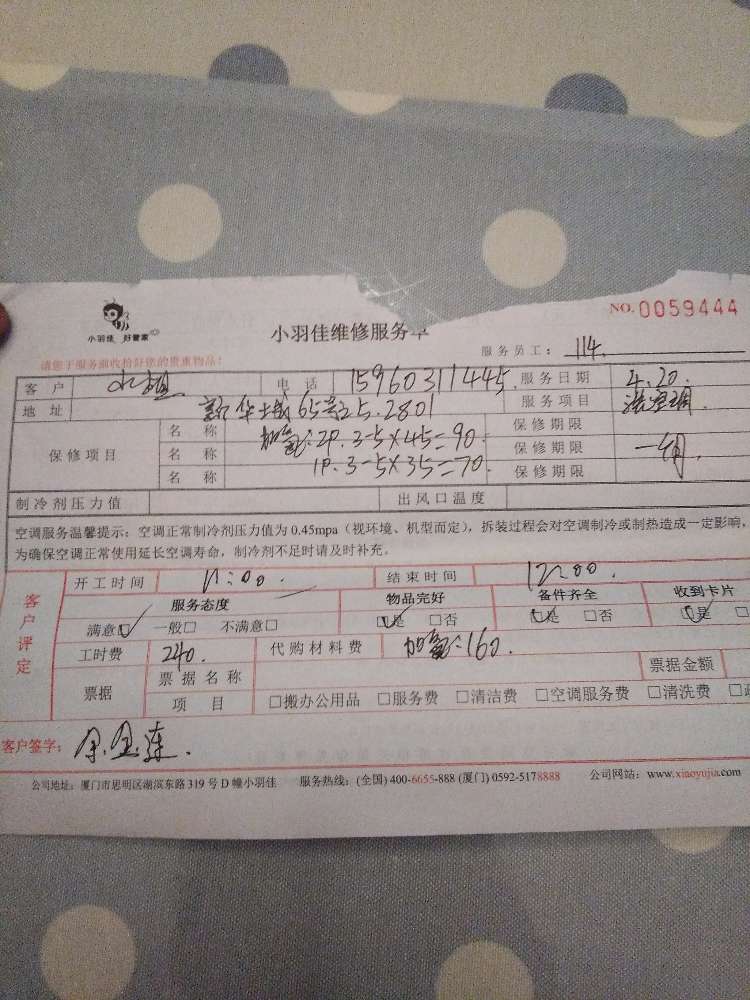 NO.0059444
小羽佳 好管家
小羽佳维修服务单
服务员工: 114.
请您于服务前收拾好您的贵重物品!
客户 水姐 电话 15960311445. 服务日期 4.20.
地址 65号 2801 服务项目 洗空调.
保修项目 名称 加氟:2P.3-5×45=90. 保修期限
名称 1P.3-5×35=70. 保修期限 一个月
名称 保修期限
制冷剂压力值 出风口温度
空调服务温馨提示:空调正常制冷剂压力值为0.45mpa(视环境、机型而定),拆装过程会对空调制冷或制热造成一定影响,
为确保空调正常使用延长空调寿命,制冷剂不足时请及时补充。
客户评定
开工时间 11:00. 结束时间 12:00.
服务态度 物品完好 备件齐全 收到卡片
满意☑ 一般□ 不满意□ ☑是 □否 ☑是 □否 ☑是 □
工时费 240. 代购材料费 加氟:160.
票据 票据名称 票据金额
项目 □搬办公用品 □服务费 □清洁费 □空调服务费 □清洗费
客户签字: 余金莲.
公司地址:厦门市思明区湖滨东路319号D幢小羽佳 服务热线:(全国)400-6655-888 (厦门)0592-5178888 公司网站:www.xiaoyujia.com